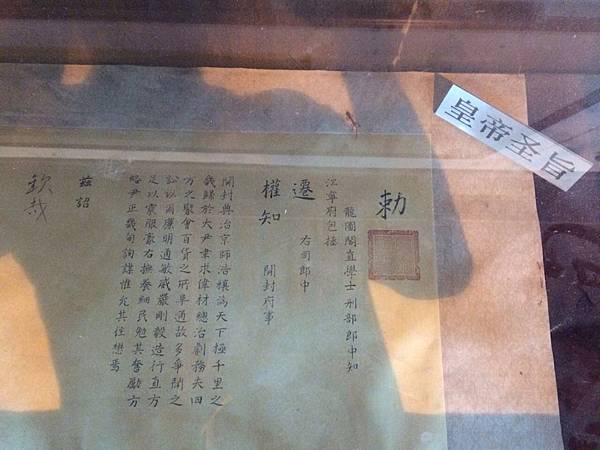 皇帝圣旨
勅
龍圖閣直學士刑部郎中知
江寧府包拯
遷
右司郎中
權知
開封府事
開封典治京師浩穰為天下極千里之
畿歸於大尹聿求偉材總治劇務夫四
方之聚會百貨之所阜通故多爭鬪之
訟以爾廉明通敏威嚴剛毅造行直方
足以震服豪右撫養細民勉其奮勵方
略尹正畿甸詢謀惟允其往懋焉
茲詔
欽哉